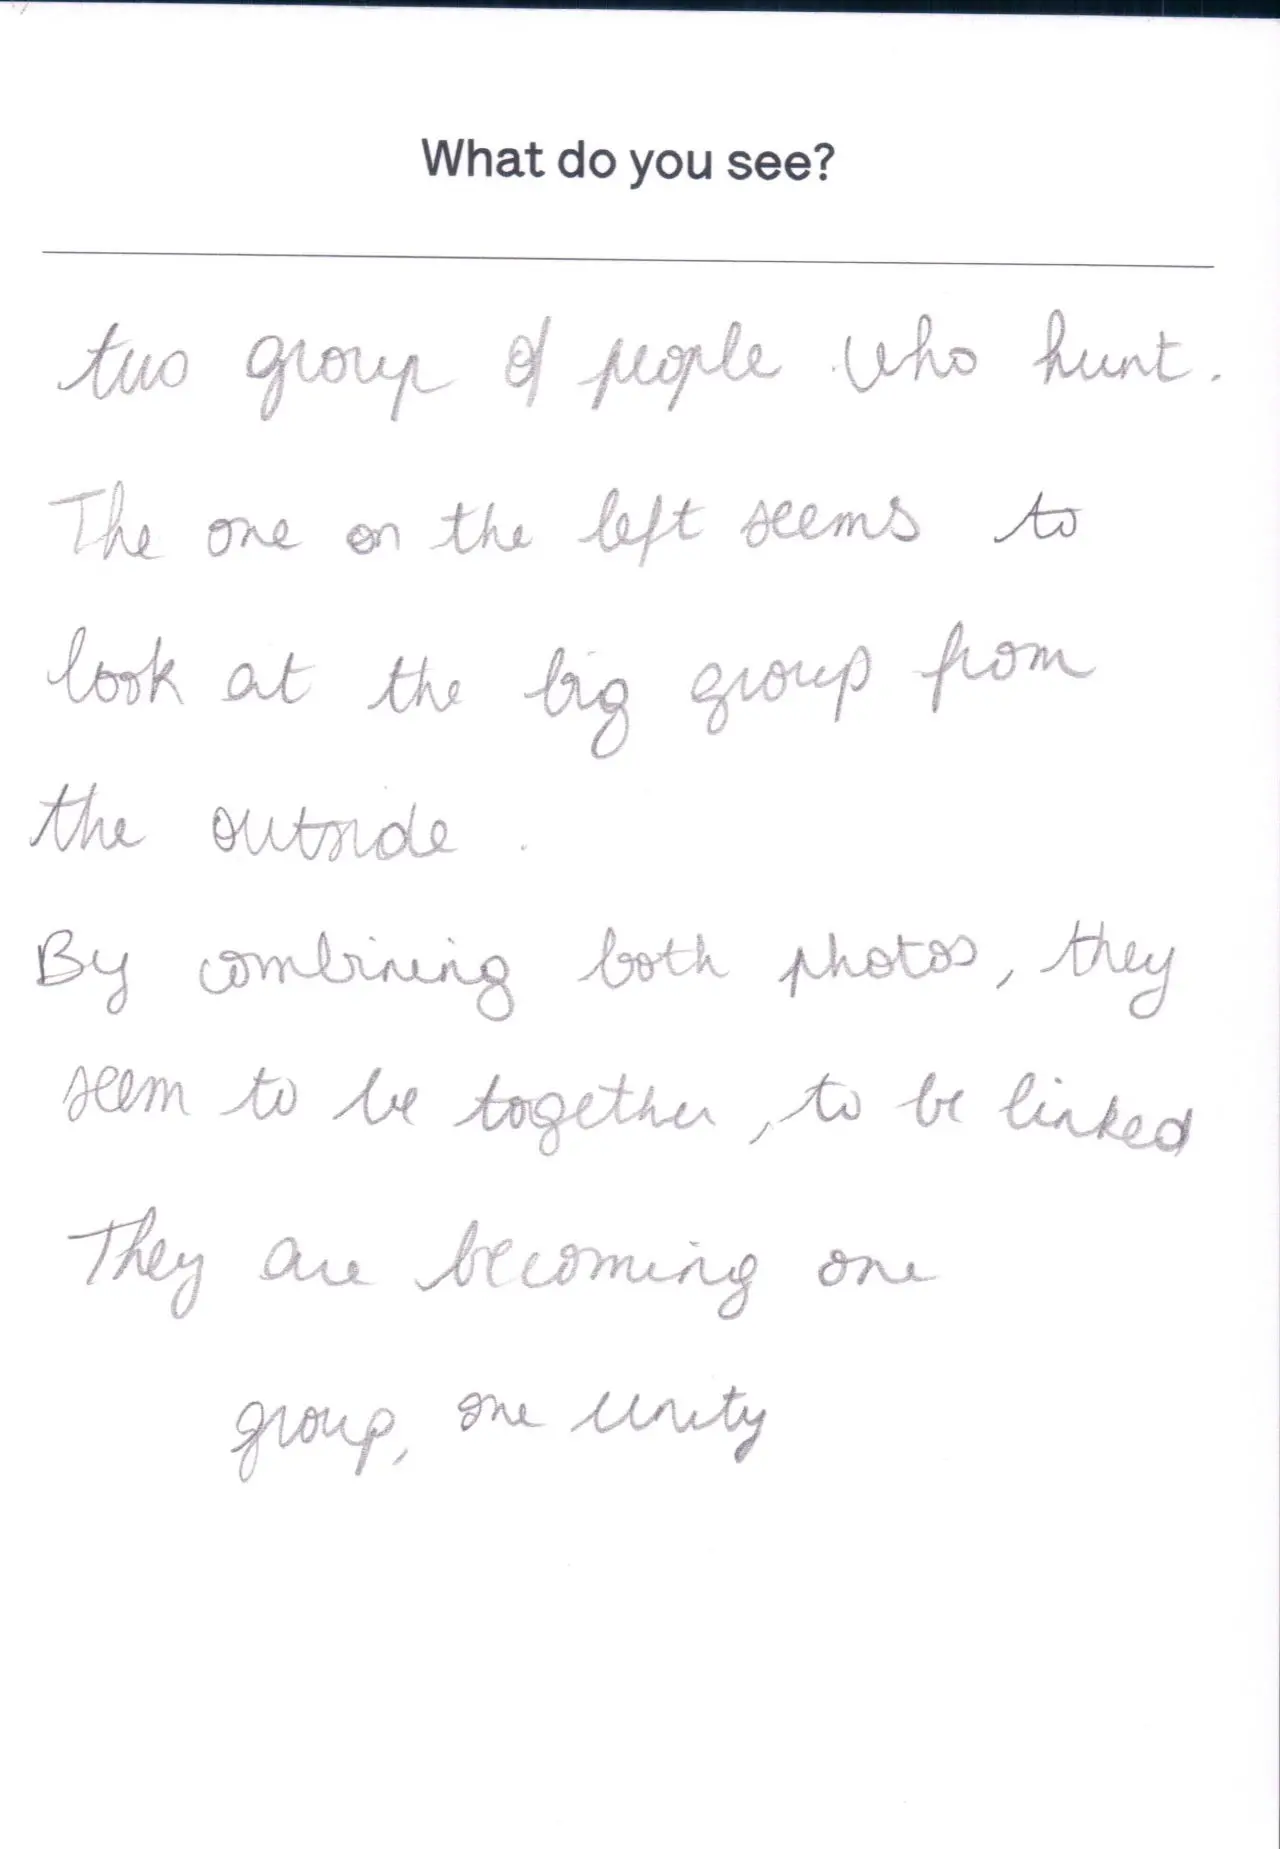 What do you see?
two group of people who hunt.
The one on the left seems to
look at the big group from
the outside.
By combining both photos, they
seem to be together, to be linked
They are becoming one
group, one unity